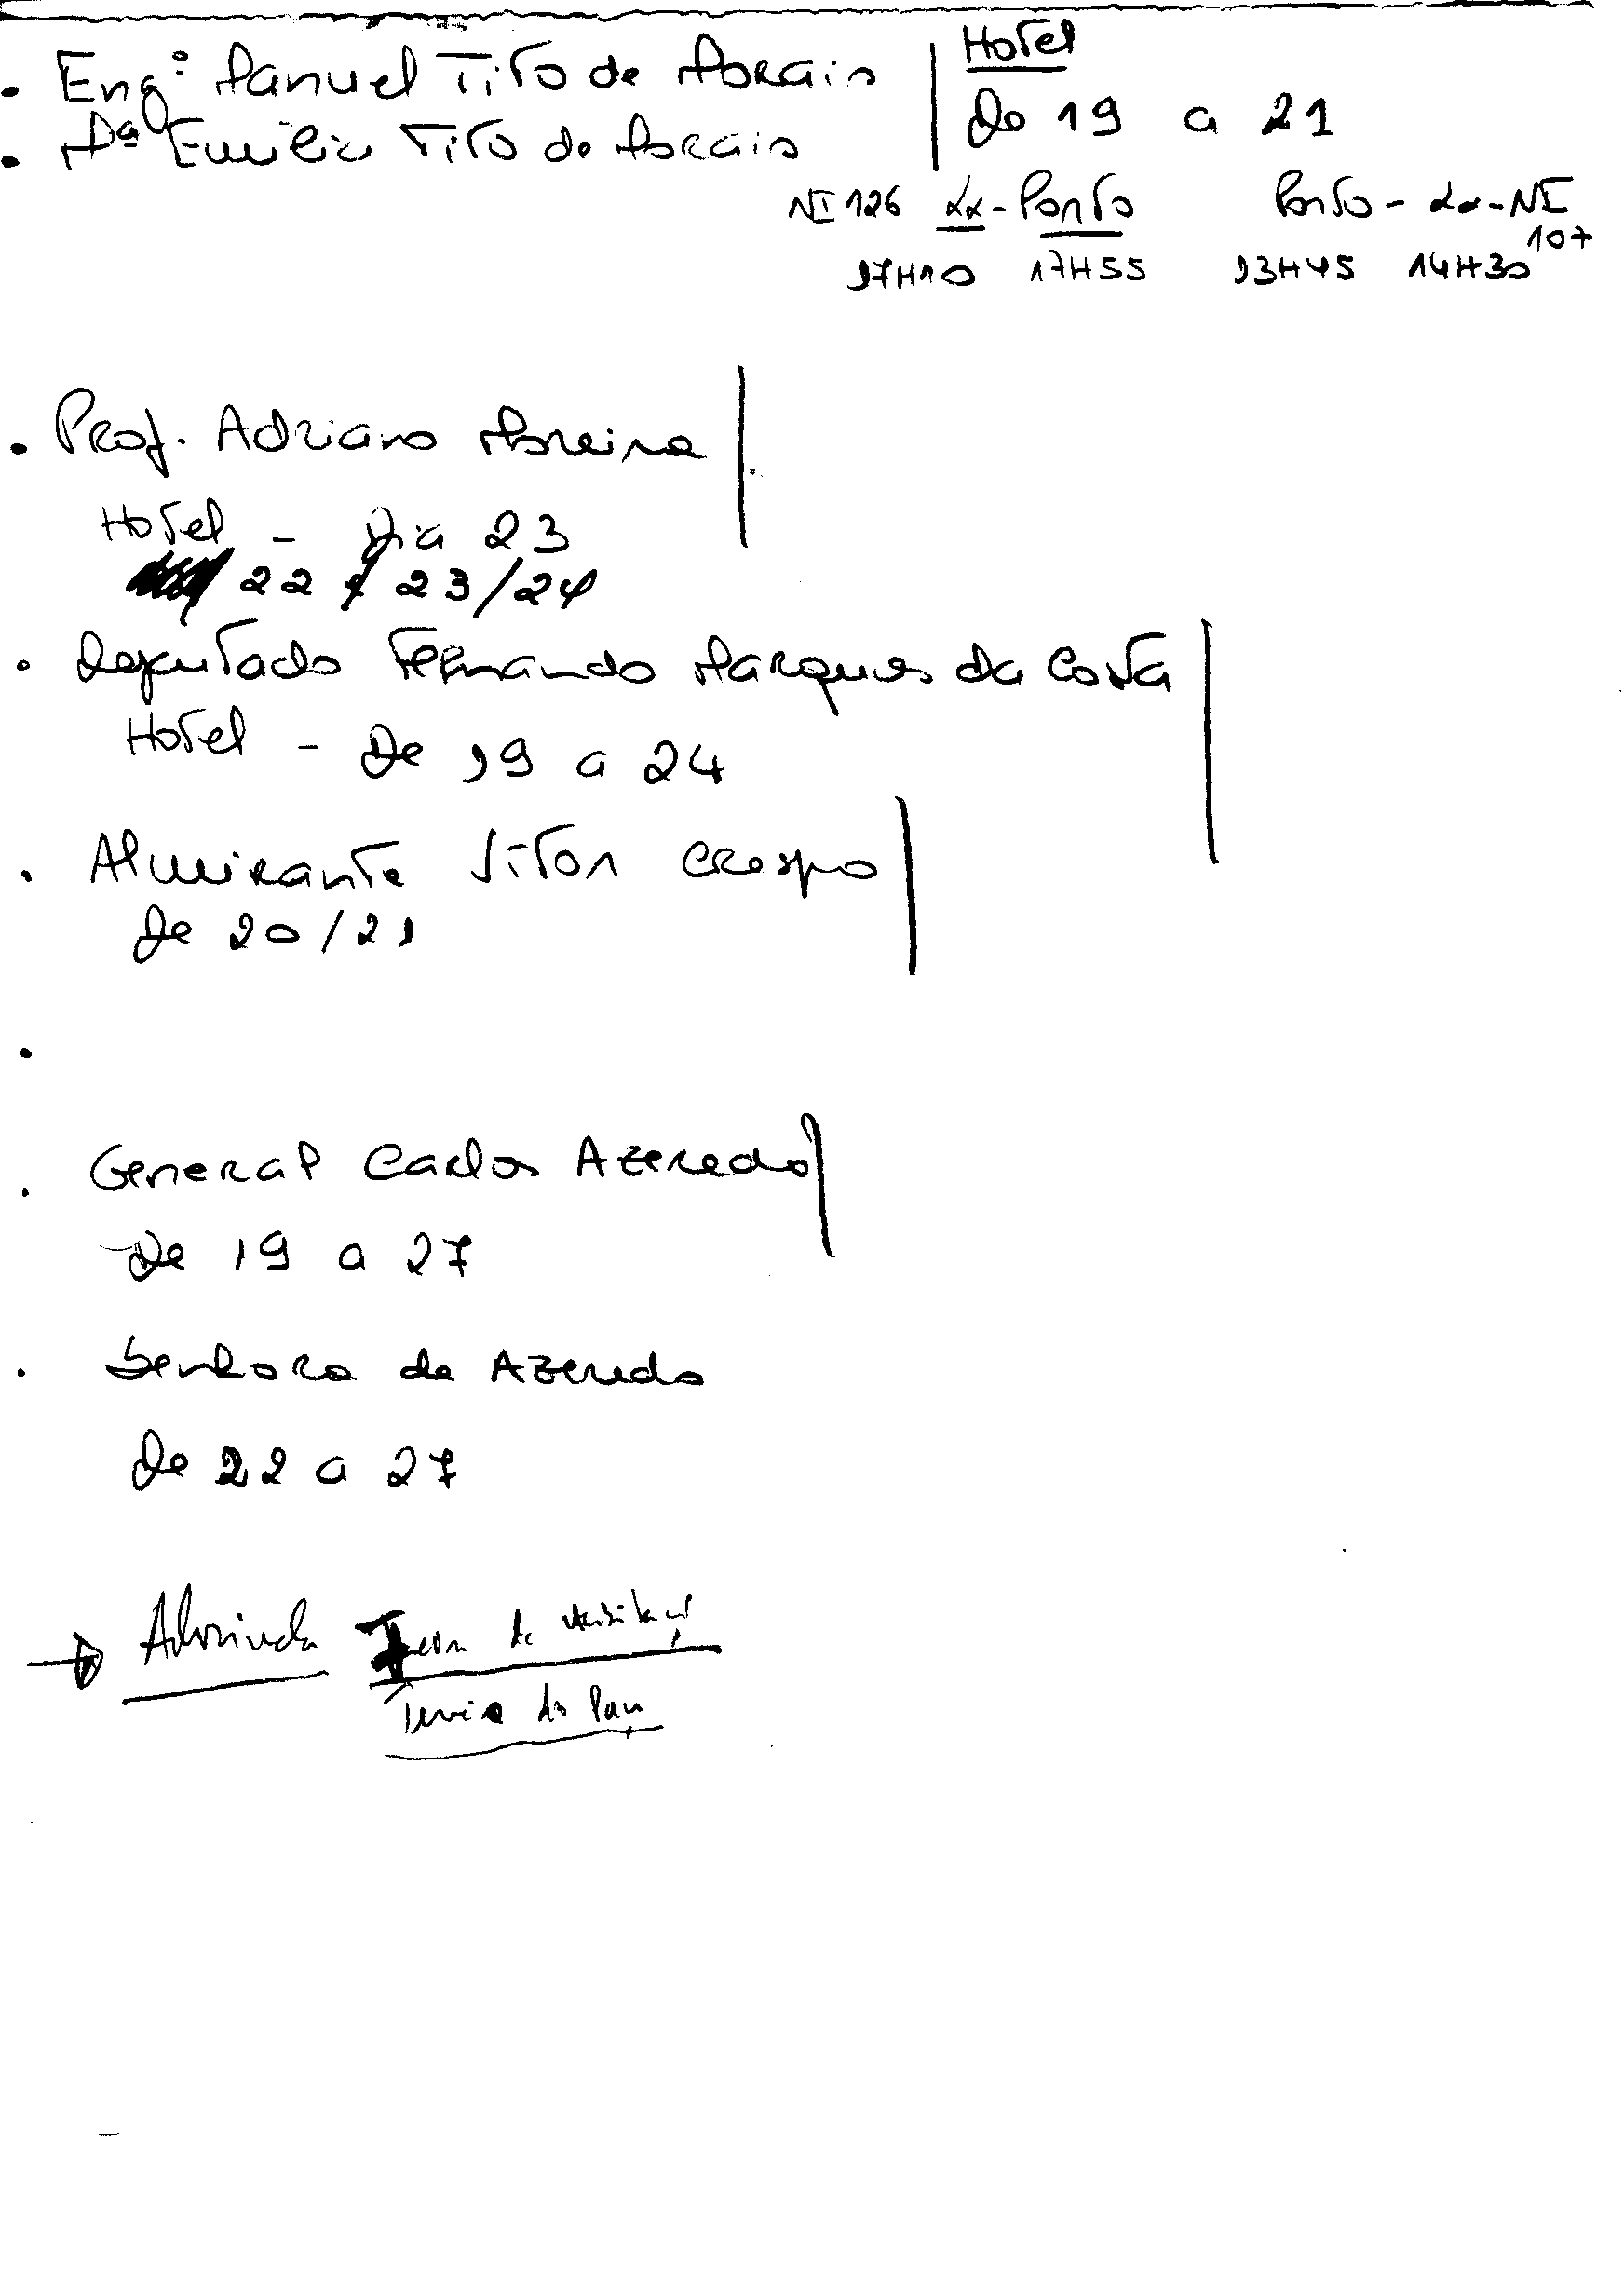 . Engº Manuel Tito de Morais
Hotel
De 19 a 21
. Dª Emília Tito de Morais
NI 126 Lx - Porto Porto - Lx - NI 107
17H10 17H55 13H45 14H30
. Prof. Adriano Moreira
Hotel - Dia 23
22 / 23/24
. Deputado Fernando Marques da Costa
Hotel - De 19 a 24
. Almirante Vitor Crespo
De 20/21
.
. General Carlos Azeredo
De 19 a 27
. Senhora de Azeredo
De 22 a 27
→ Alvorinda de
do Paço